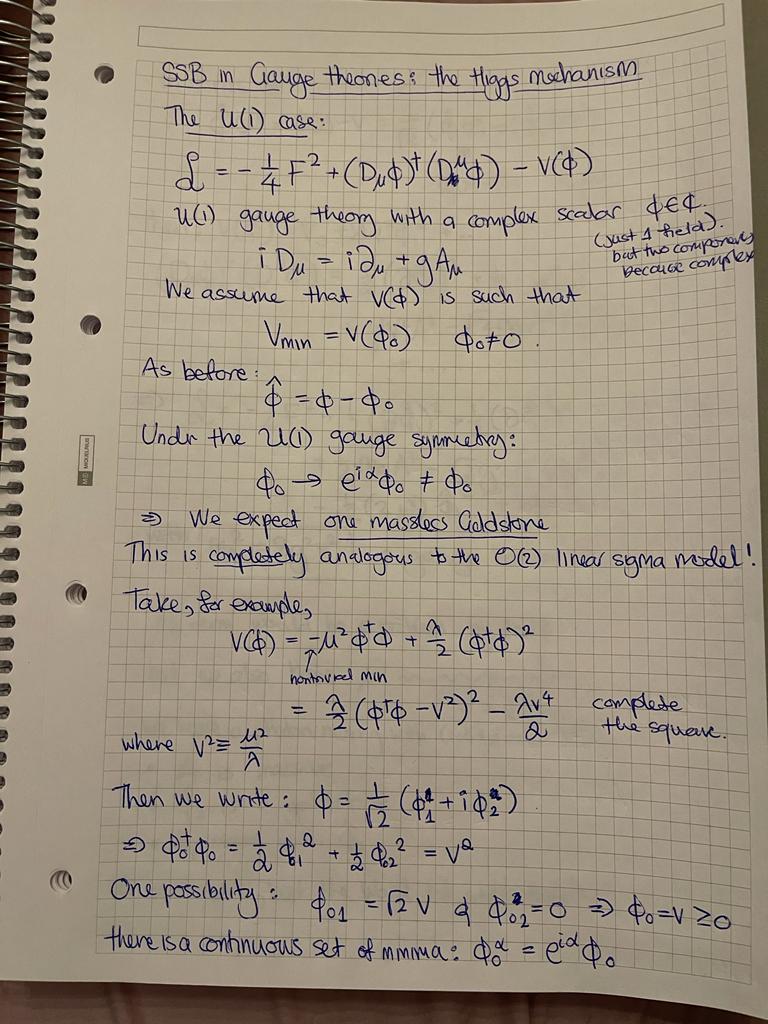 SSB in Gauge theories: the Higgs mechanism
The U(1) case:
ℒ = -1/4 F² + (Dμϕ)†(Dᵘϕ) - V(ϕ)
U(1) gauge theory with a complex scalar ϕ∈ℂ.
(just 1 field).
but two components
because complex
i Dμ = i∂μ + g Aμ
We assume that V(ϕ) is such that
Vmin = V(ϕ₀) ϕ₀≠0.
As before:
ϕ̂ = ϕ - ϕ₀
Undr the U(1) gauge symmetry:
ϕ₀ → e^{iα}ϕ₀ ≠ ϕ₀
⇒ We expect one massless Goldstone
This is completely analogous to the O(2) linear sigma model!
Take, for example,
V(ϕ) = -μ²ϕ†ϕ + λ/2 (ϕ†ϕ)²
↑
nontrivial min
= λ/2 (ϕ†ϕ - v²)² - λv⁴/2 complete
the square.
where v² ≡ μ²/λ
Then we write: ϕ = 1/√2 (ϕ₁ + iϕ₂)
⇒ ϕ₀†ϕ₀ = 1/2 ϕ₀₁² + 1/2 ϕ₀₂² = v²
One possibility: ϕ₀₁ = √2 v & ϕ₀₂ = 0 ⇒ ϕ₀ = v ≥ 0
there is a continuous set of minima: ϕ₀^α = e^{iα}ϕ₀
MIQUELRIUS